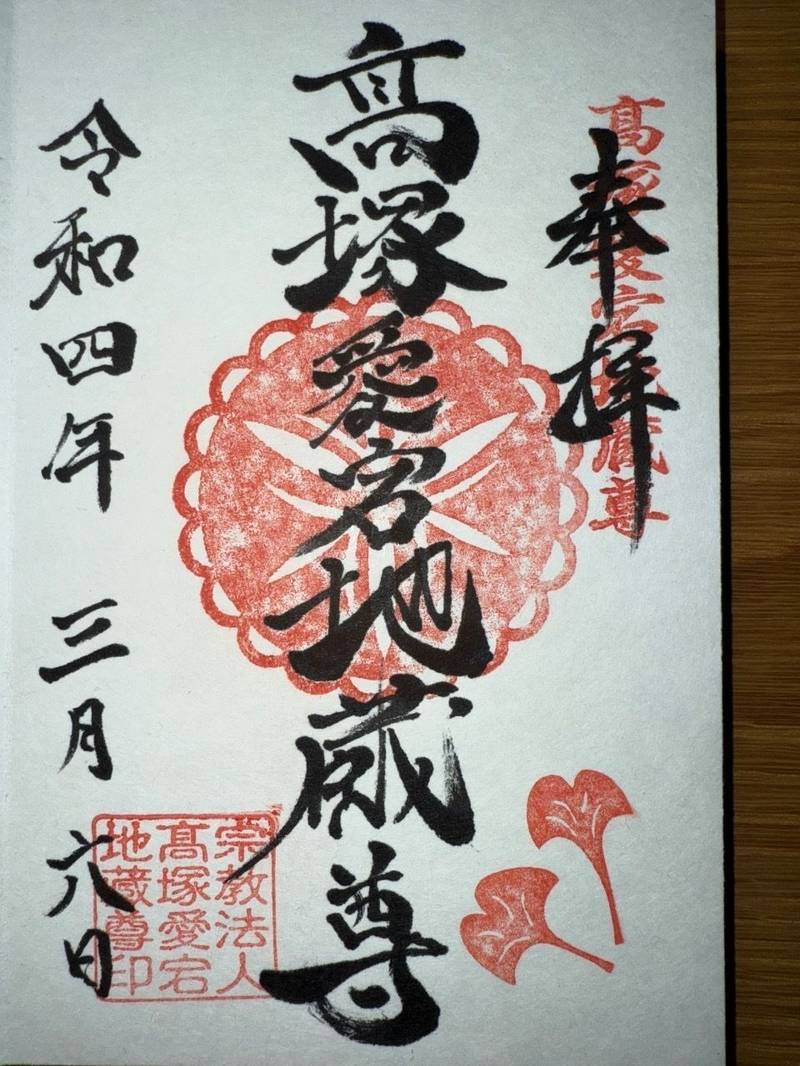 奉拝
高塚愛宕地蔵尊
高塚愛宕地蔵尊
令和四年 三月 六日
宗教法人
髙塚愛宕
地蔵尊印